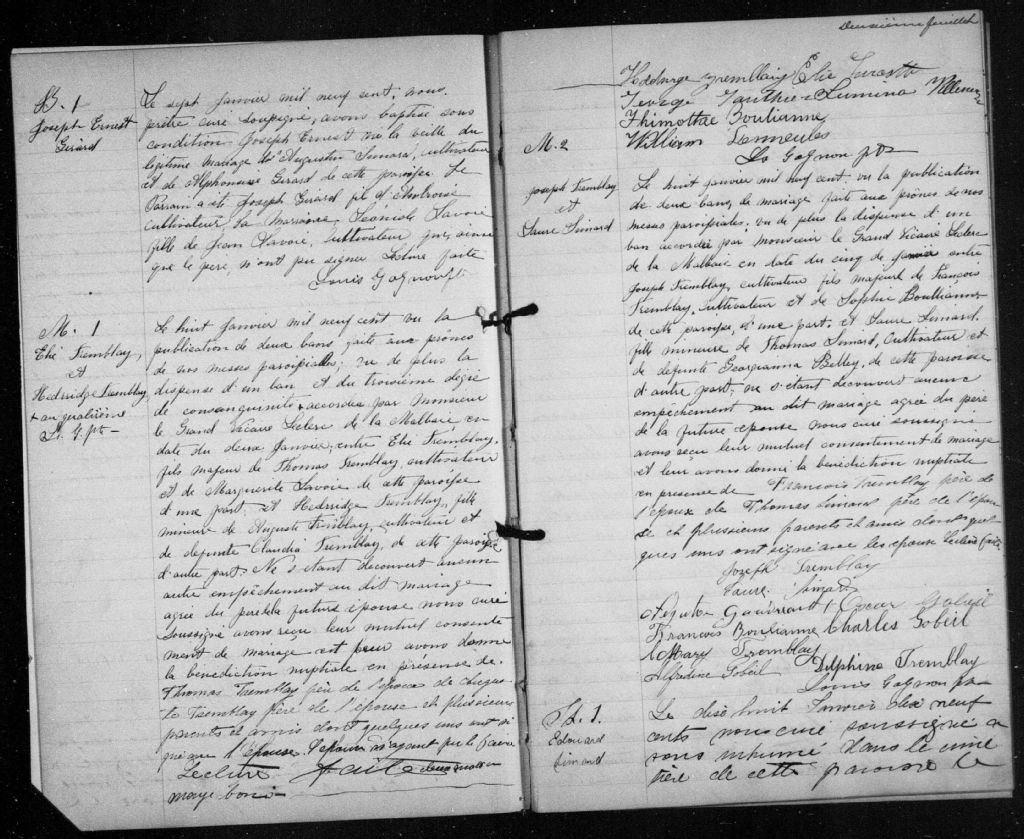 B. 1
Joseph Ernest
Girard
Le sept janvier mil neuf cent, nous,
prêtre curé soussigné, avons baptisé sous
condition Joseph Ernest né la veille du
légitime mariage d'Augustin Simard, cultivateur
et de Alphonsine Girard de cette paroisse. Le
Parrain a été Joseph Girard fils d'Ambroise
cultivateur, la Marraine Léonide Savoie
fille de Jean Savoie, cultivateur qui, ainsi
que le père, n'ont pu signer. Lecture faite
Louis Gagnon ptr
M. 1
Elie Tremblay,
et
Hedridge Tremblay
+ au quatrième
L. G. pt-
Le huit janvier mil neuf cent vu la
publication de deux bans faite aux prônes
de nos messes paroissiales, vu de plus la
dispense d'un ban et du troisième degré
de consanguinité + accordée par Monsieur
le Grand Vicaire Leclerc de la Malbaie en
date du deux janvier, entre Elie Tremblay,
fils majeur de Thomas Tremblay, cultivateur
et de Marguerite Savoie de cette paroisse
d'une part, et Hedridge Tremblay, fille
mineure de Auguste Tremblay, cultivateur et
de defunte Claudia Tremblay, de cette paroisse
d'autre part. Ne s'étant découvert aucun
autre empêchement au dit mariage
agréé du père de la future épouse nous curé
soussigné avons reçu leur mutuel consente
ment de mariage et leur avons donné
la bénédiction nuptiale en présence de
Thomas Tremblay père de l'époux de Augus
te Tremblay père de l'épouse et plusieurs
parents et amis dont quelques uns ont si
gné avec l'épouse l'époux n'ayant pu le faire
Lecture faite deux mots en
marge bons
Deuxième feuillet
Hedridge Tremblay Elie
George Gauthier Lumina Villeneuve
Thimothée Boulianne
William
Ls Gagnon ptr
M. 2
Joseph Tremblay
et
Laure Simard
Le huit janvier mil neuf cent, vu la publication
de deux bans de mariage faite aux prônes de nos
messes paroissiales, vu de plus la dispense d'un
ban accordée par monsieur le Grand Vicaire Leclerc
de la Malbaie en date du cinq de janvier entre
Joseph Tremblay, cultivateur fils majeur de François
Tremblay, cultivateur et de Sophie Boulianne
de cette paroisse, d'une part, et Laure Simard,
fille mineure de Thomas Simard, cultivateur et
de defunte Georgianna Belley, de cette paroisse
d'autre part, ne s'étant découvert aucun
empêchement au dit mariage agréé du père
de la future épouse nous curé soussigné
avons reçu leur mutuel consentement de mariage
et leur avons donné la bénédiction nuptiale
en présence de François Tremblay père de
l'époux de Thomas Simard père de l'épou
se et plusieurs parents et amis dont quel
ques uns ont signé avec les époux Lecture faite
Joseph Tremblay
Laure Simard
Gaudreault Oscar Gobeil
François Boulianne Charles Gobeil
Mary Tremblay
Alfredine Gobeil Delphine Tremblay
Louis Gagnon ptr
Sd. 1.
Edouard
Simard
Le dix huit Janvier dix neuf
cents nous curé soussigné a
vons inhumé dans le cime
tière de cette paroisse le